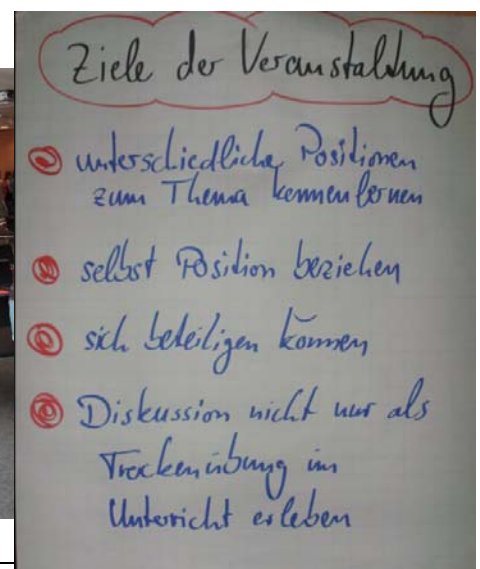 Ziele der Veranstaltung
unterschiedliche Positionen
zum Thema kennenlernen
selbst Position beziehen
sich beteiligen können
Diskussion nicht nur als
Trockenübung im
Unterricht erleben